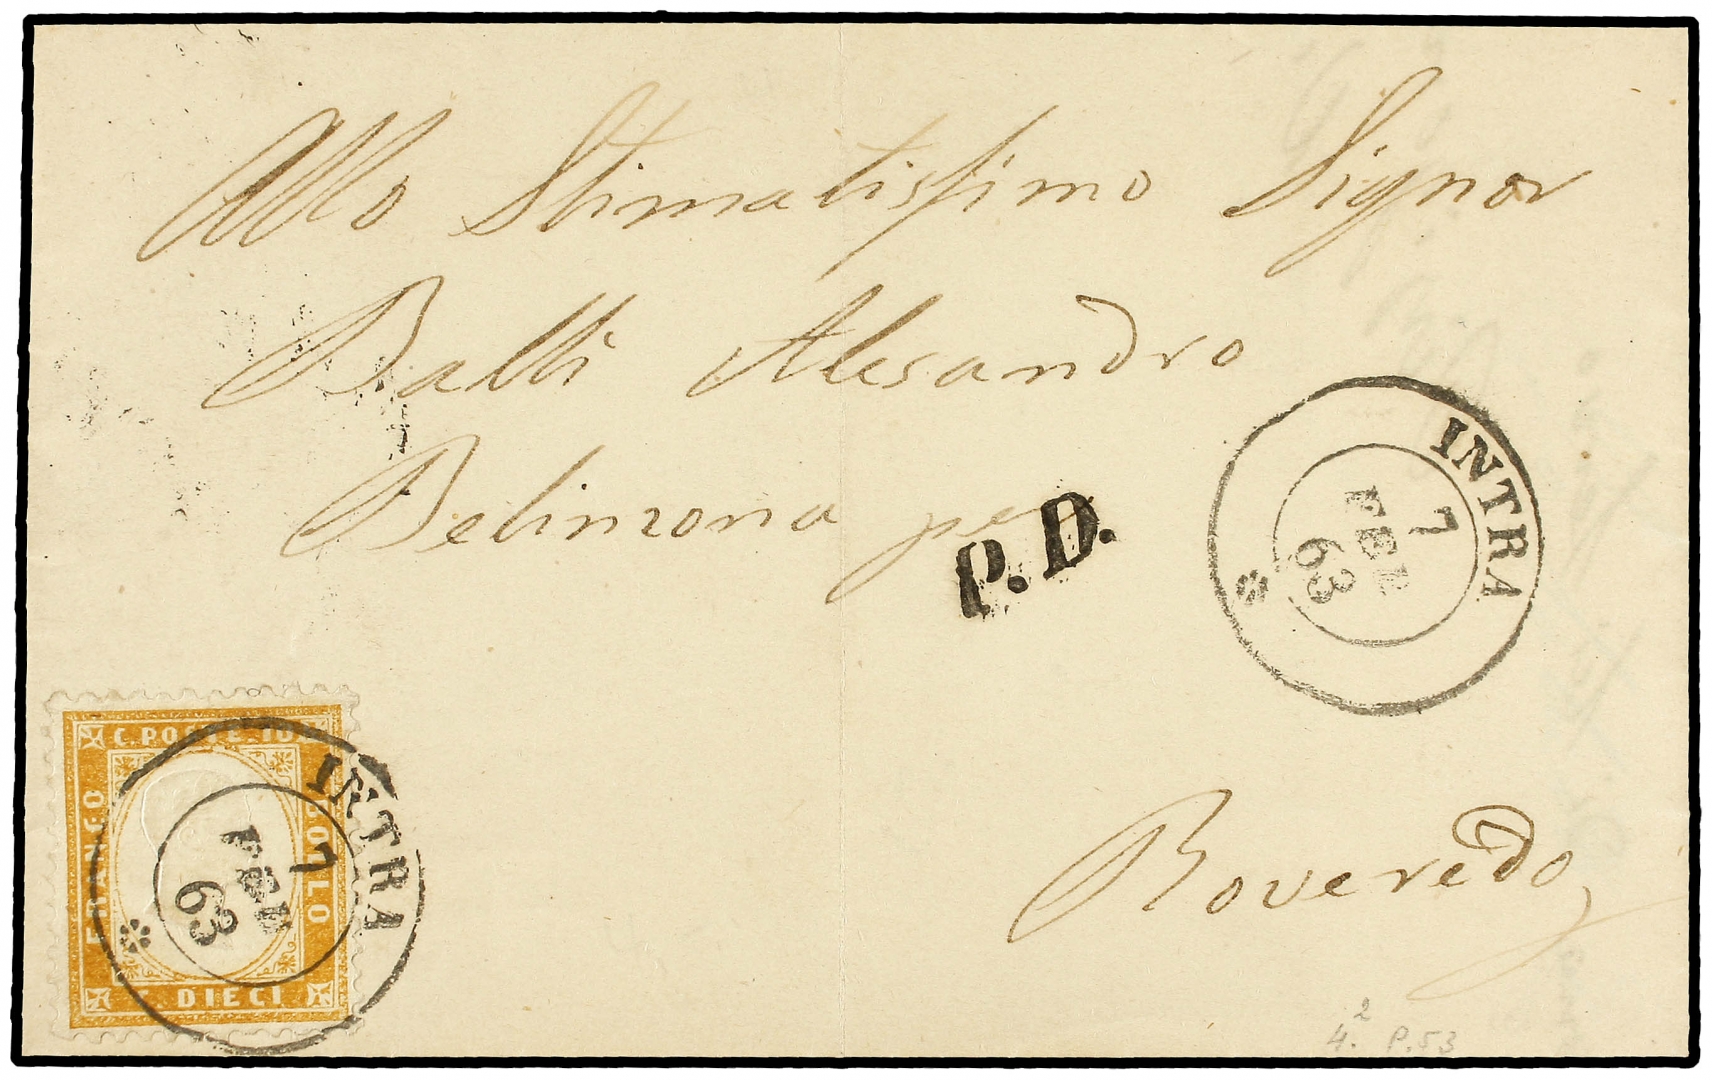 Allo Stimatissimo Signor
Balli Alesandro
Belinzona per
P.D.
INTRA
7
FEB
63
Roveredo
C. POSTE. 10
FRANCO
BOLLO
C. DIECI
INTRA
7
FEB
63
2
4. P.53